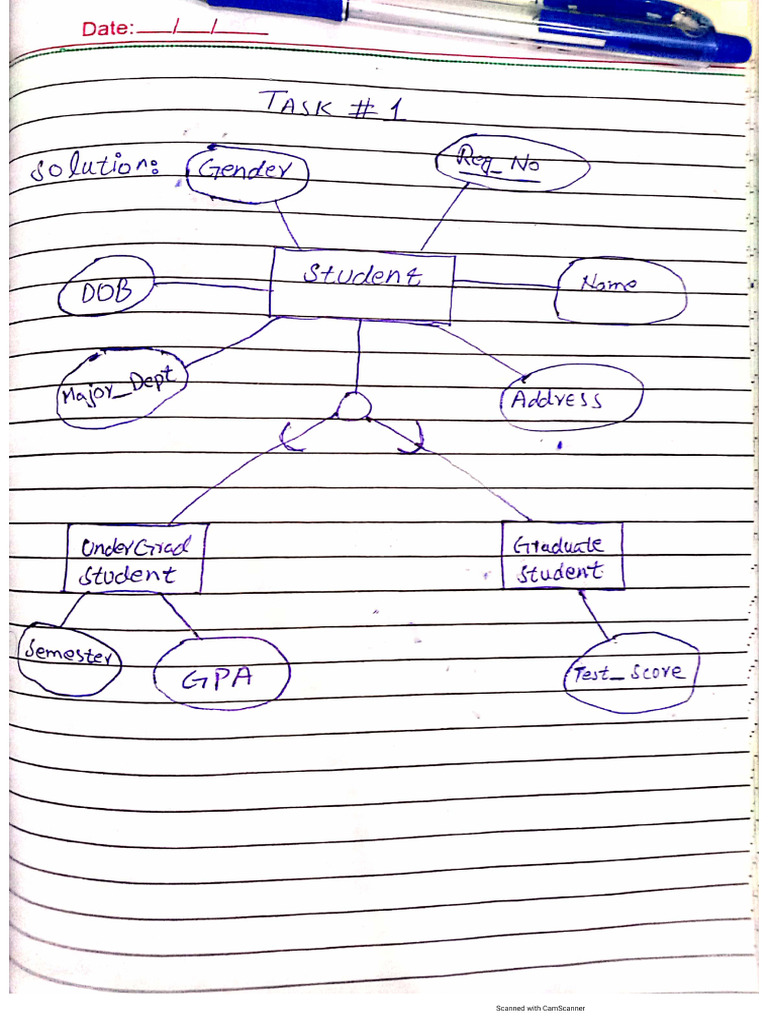 Date: __/__/____
TASK # 1
Solution:
Gender
Reg_No
Student
DOB
Name
Major_Dept
Address
UnderGrad
Student
Graduate
Student
Semester
GPA
Test_Score
Scanned with CamScanner